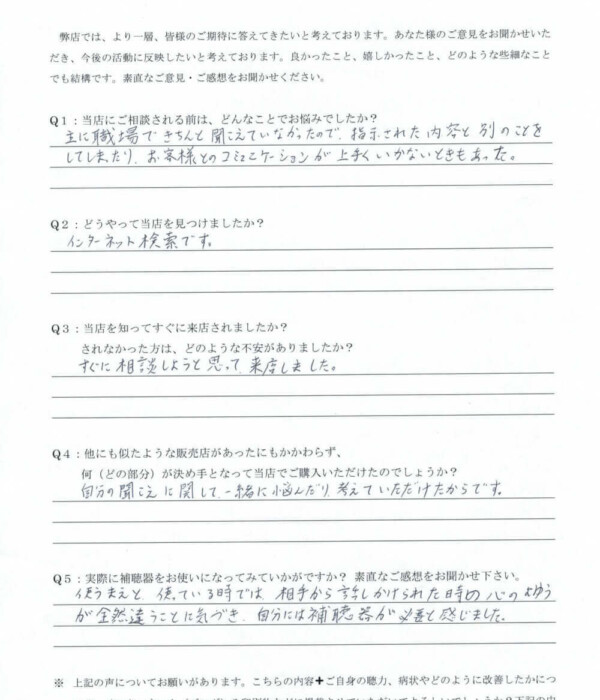 弊店では、より一層、皆様のご期待に答えてきたいと考えております。あなた様のご意見をお聞かせいた
だき、今後の活動に反映したいと考えております。良かったこと、嬉しかったこと、どのような些細なこと
でも結構です。素直なご意見・ご感想をお聞かせください。
Q1：当店にご相談される前は、どんなことでお悩みでしたか？
主に職場できちんと聞こえていなかったので、指示された内容と別のことを
してしまったり、お客様とのコミュニケーションが上手くいかないときもあった。
Q2：どうやって当店を見つけましたか？
インターネット検索です。
Q3：当店を知ってすぐに来店されましたか？
されなかった方は、どのような不安がありましたか？
すぐに相談しようと思って、来店しました。
Q4：他にも似たような販売店があったにもかかわらず、
何（どの部分）が決め手となって当店でご購入いただけたのでしょうか？
自分の聞こえに関して、一緒に悩んだり、考えていただけたからです。
Q5：実際に補聴器をお使いになってみていかがですか？ 素直なご感想をお聞かせ下さい。
使うまえと、使っている時では、相手から話しかけられた時の心のよゆう
が全然違うことに気づき、自分には補聴器が必要と感じました。
※ 上記の声についてお願いがあります。こちらの内容✚ご自身の聴力、病状やどのように改善したかにつ